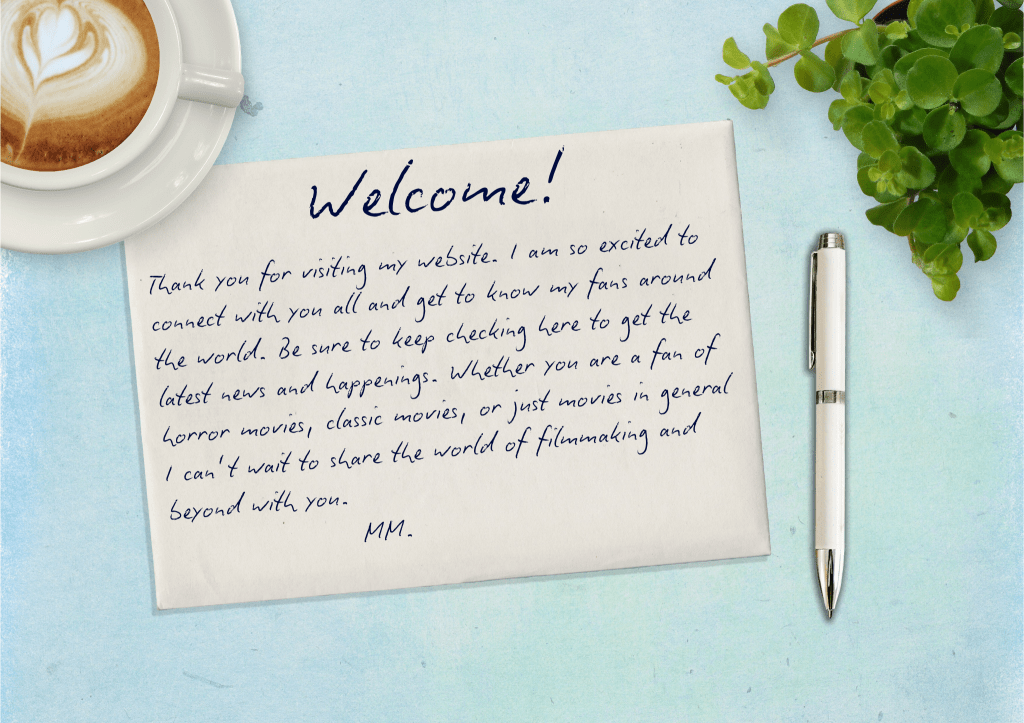 Welcome!
Thank you for visiting my website. I am so excited to
connect with you all and get to know my fans around
the world. Be sure to keep checking here to get the
latest news and happenings. Whether you are a fan of
horror movies, classic movies, or just movies in general
I can't wait to share the world of filmmaking and
beyond with you.
MM.